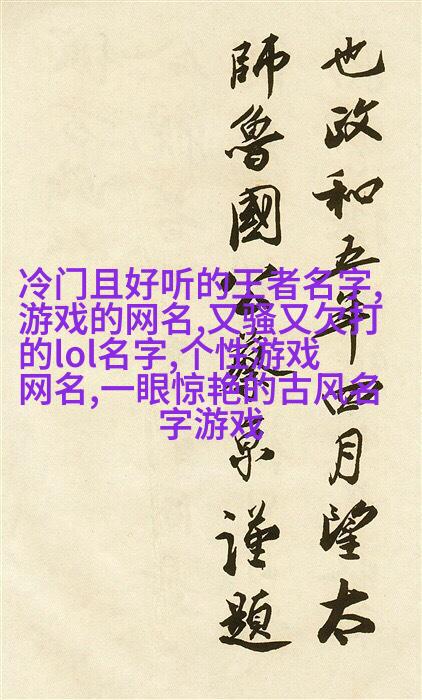 也政和五年四月望太
師魯國公蔡京謹題
冷门且好听的王者名字,
游戏的网名,又骚又欠打
的lol名字,个性游戏
网名,一眼惊艳的古风名
字游戏